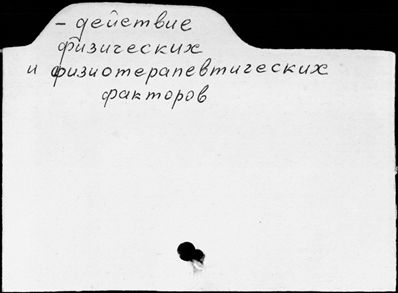 – действие
физических
и физиотерапевтических
факторов